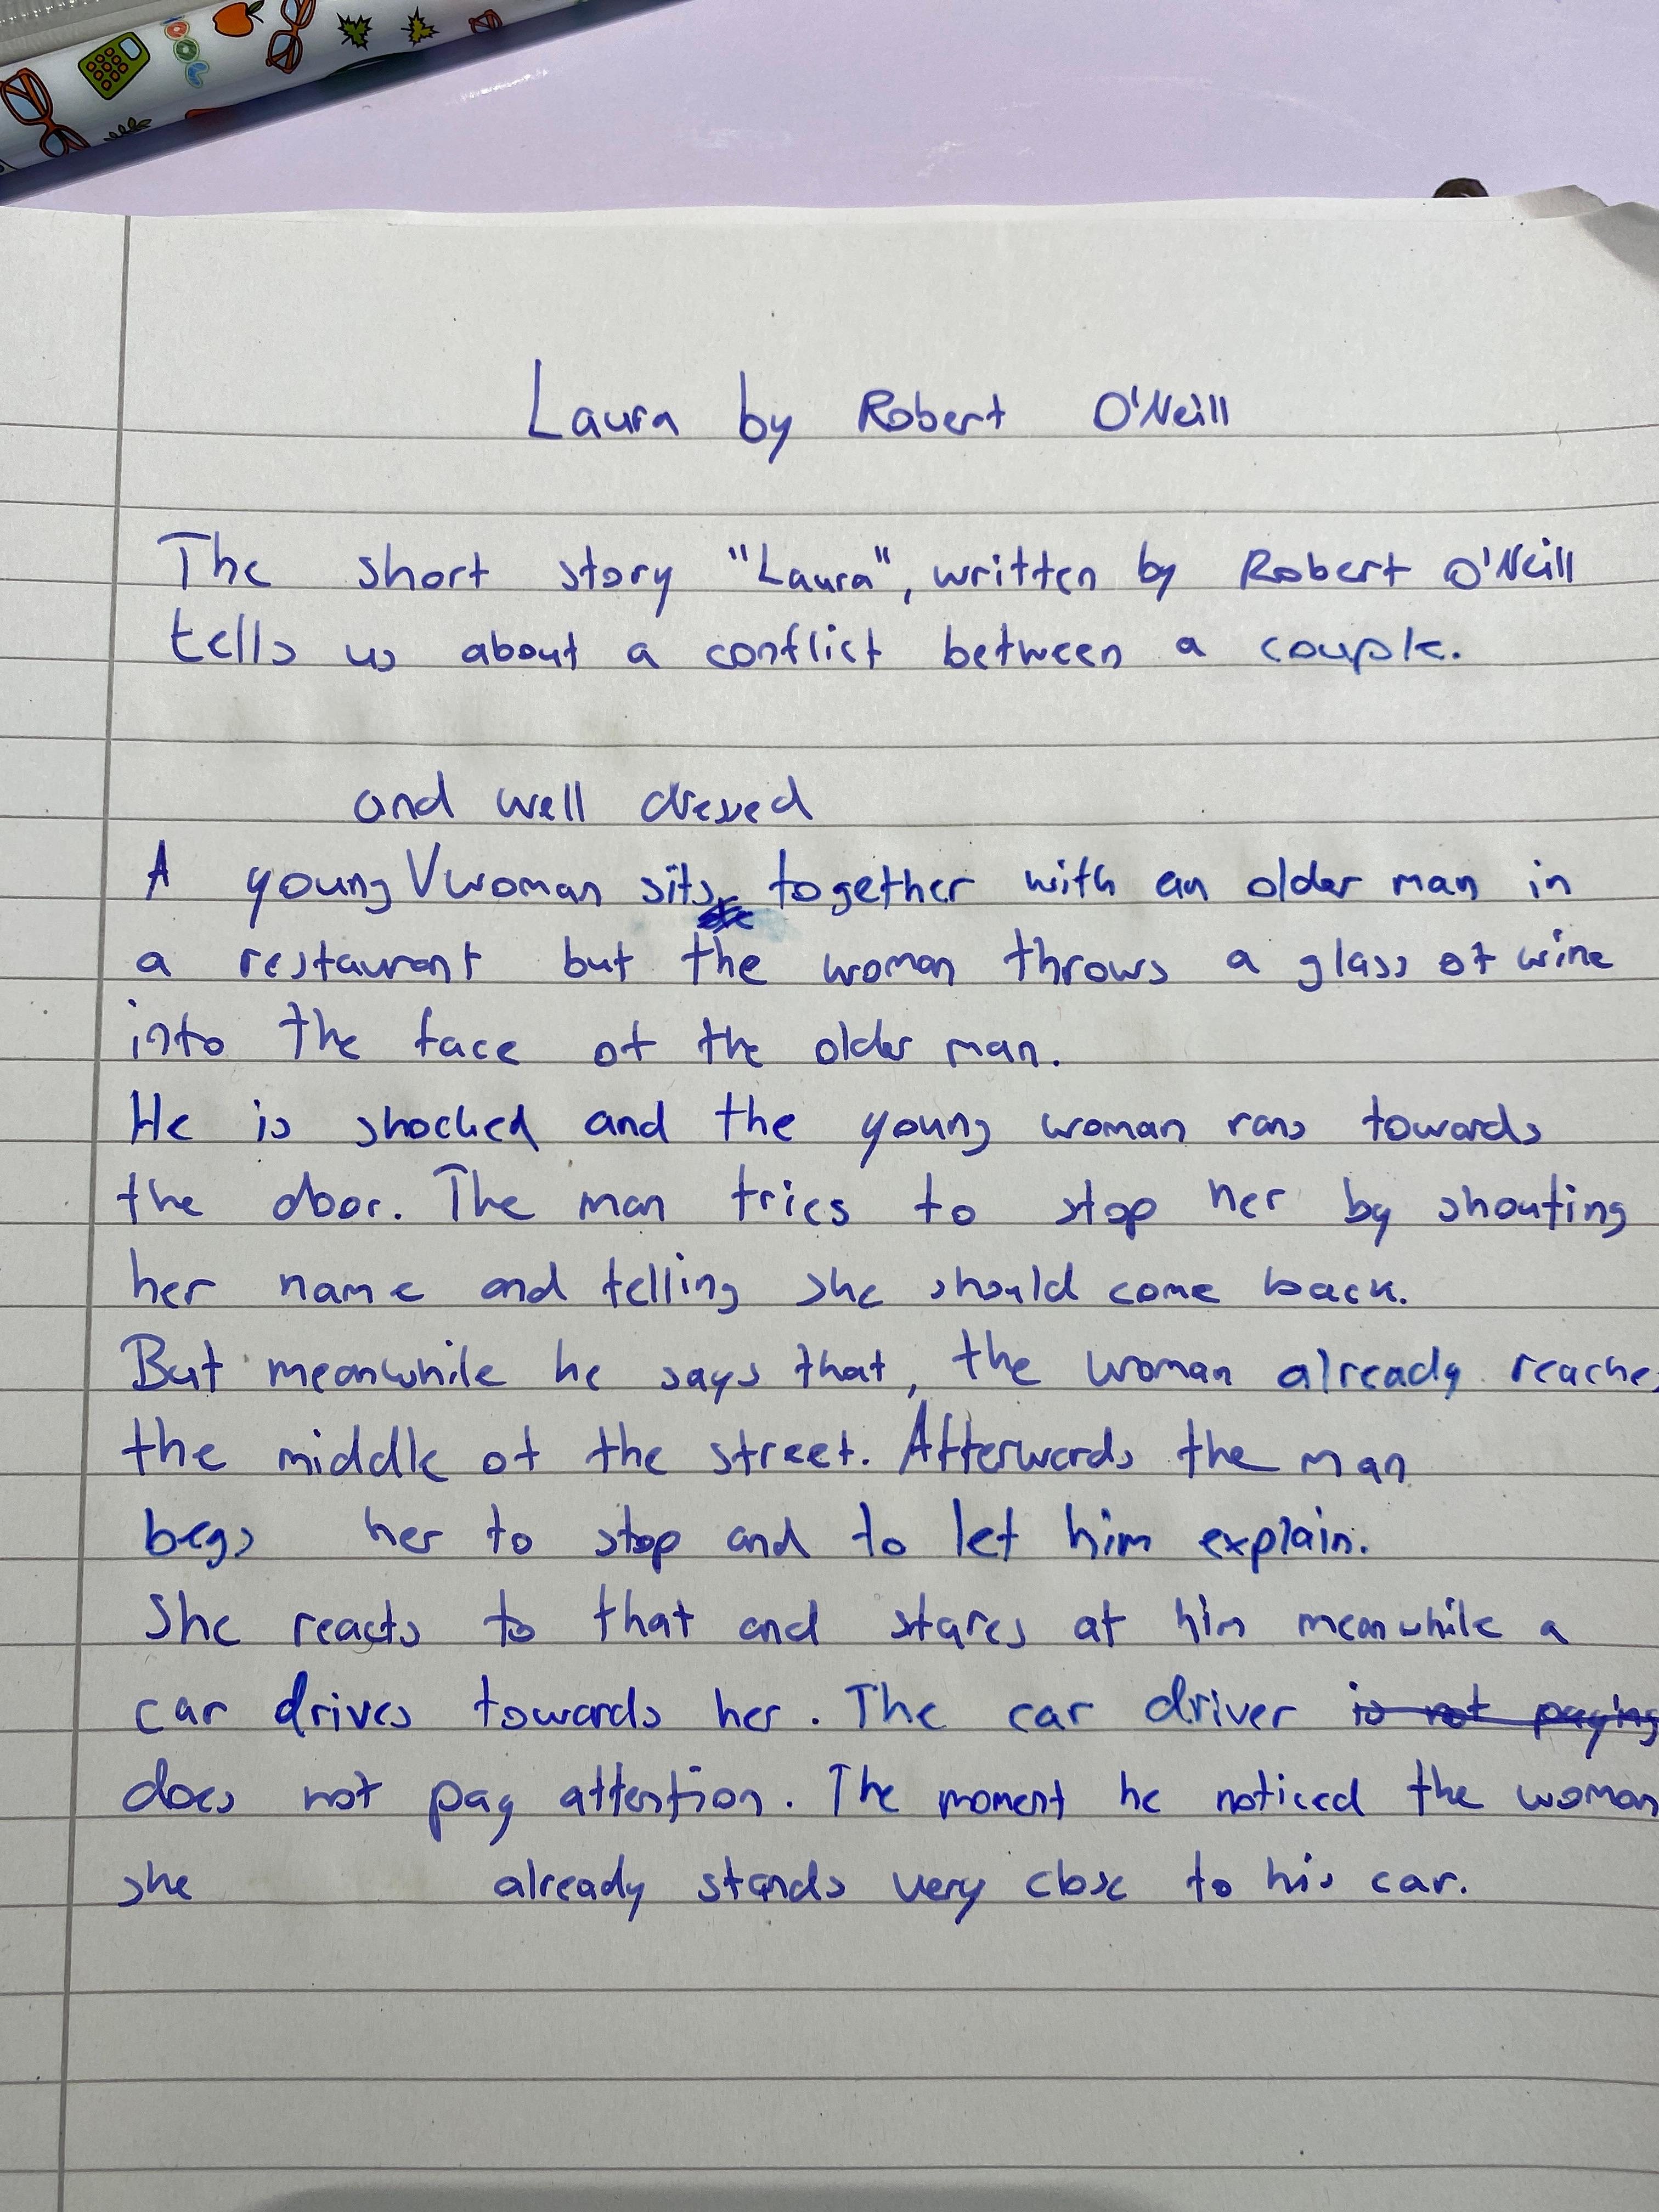 Laura by Robert O'Neill
The short story "Laura", written by Robert O'Neill
tells us about a conflict between a couple.
and well dressed
A young V woman sits together with an older man in
a restaurant but the woman throws a glass of wine
into the face of the older man.
He is shocked and the young woman rans towards
the door. The man tries to stop her by shouting
her name and telling she should come back.
But meanwhile he says that, the woman already reaches
the middle of the street. Afterwards the man
begs her to stop and to let him explain.
She reacts to that and stares at him meanwhile a
car drives towards her. The car driver is not paying
does not pay attention. The moment he noticed the woman
she already stands very close to his car.